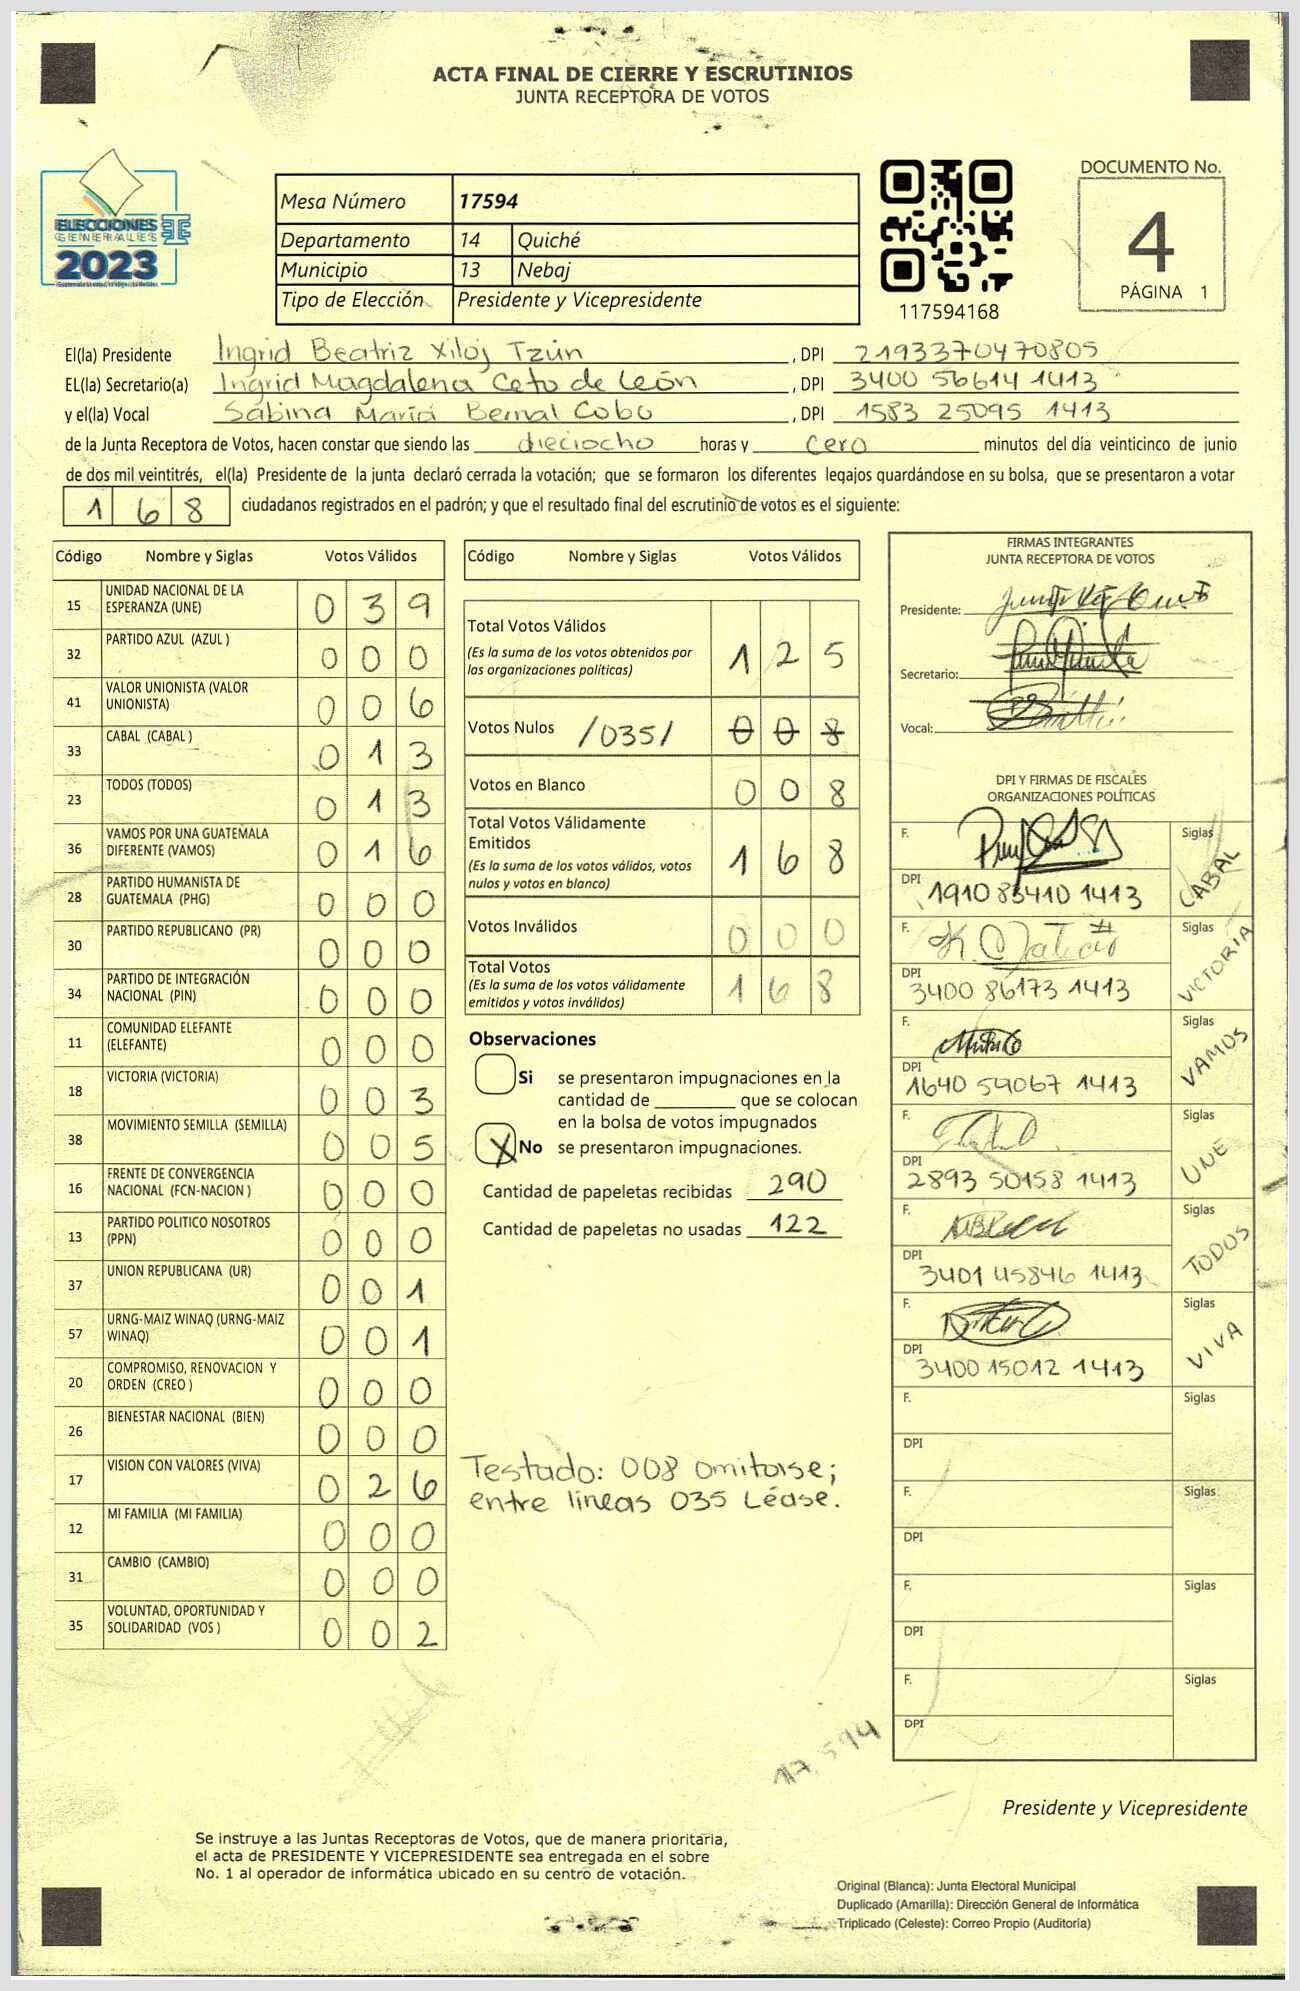 ACTA FINAL DE CIERRE Y ESCRUTINIOS
JUNTA RECEPTORA DE VOTOS
ELECCIONES
GENERALES
2023
Mesa Número 17594
Departamento 14 Quiché
Municipio 13 Nebaj
Tipo de Elección Presidente y Vicepresidente
117594168
DOCUMENTO No.
4
PÁGINA 1
El(la) Presidente Ingrid Beatriz Xiloj Tzún , DPI 2193370470805
EL(la) Secretario(a) Ingrid Magdalena Ceto de León , DPI 3400 56614 1413
y el(la) Vocal Sabina María Bernal Cobo , DPI 1583 25095 1413
de la Junta Receptora de Votos, hacen constar que siendo las dieciocho horas y cero minutos del día veinticinco de junio
de dos mil veintitrés, el(la) Presidente de la junta declaró cerrada la votación; que se formaron los diferentes legajos guardándose en su bolsa, que se presentaron a votar
168 ciudadanos registrados en el padrón; y que el resultado final del escrutinio de votos es el siguiente:
Código Nombre y Siglas Votos Válidos
15 UNIDAD NACIONAL DE LA ESPERANZA (UNE) 039
32 PARTIDO AZUL (AZUL ) 000
41 VALOR UNIONISTA (VALOR UNIONISTA) 006
33 CABAL (CABAL ) 013
23 TODOS (TODOS) 013
36 VAMOS POR UNA GUATEMALA DIFERENTE (VAMOS) 016
28 PARTIDO HUMANISTA DE GUATEMALA (PHG) 000
30 PARTIDO REPUBLICANO (PR) 000
34 PARTIDO DE INTEGRACIÓN NACIONAL (PIN) 000
11 COMUNIDAD ELEFANTE (ELEFANTE) 000
18 VICTORIA (VICTORIA) 003
38 MOVIMIENTO SEMILLA (SEMILLA) 005
16 FRENTE DE CONVERGENCIA NACIONAL (FCN-NACION ) 000
13 PARTIDO POLITICO NOSOTROS (PPN) 000
37 UNION REPUBLICANA (UR) 001
57 URNG-MAIZ WINAQ (URNG-MAIZ WINAQ) 001
20 COMPROMISO, RENOVACION Y ORDEN (CREO ) 000
26 BIENESTAR NACIONAL (BIEN) 000
17 VISION CON VALORES (VIVA) 026
12 MI FAMILIA (MI FAMILIA) 000
31 CAMBIO (CAMBIO) 000
35 VOLUNTAD, OPORTUNIDAD Y SOLIDARIDAD (VOS ) 002
Código Nombre y Siglas Votos Válidos
Total Votos Válidos 125
(Es la suma de los votos obtenidos por
las organizaciones políticas)
Votos Nulos /035/ 008
Votos en Blanco 008
Total Votos Válidamente
Emitidos 168
(Es la suma de los votos válidos, votos
nulos y votos en blanco)
Votos Inválidos 000
Total Votos 168
(Es la suma de los votos válidamente
emitidos y votos inválidos)
Observaciones
Si se presentaron impugnaciones en la
cantidad de ________ que se colocan
en la bolsa de votos impugnados
X No se presentaron impugnaciones.
Cantidad de papeletas recibidas 290
Cantidad de papeletas no usadas 122
Testado: 008 omitase;
entre lineas 035 Léase.
17,594
FIRMAS INTEGRANTES
JUNTA RECEPTORA DE VOTOS
Presidente:
Secretario:
Vocal:
DPI Y FIRMAS DE FISCALES
ORGANIZACIONES POLÍTICAS
F. Siglas CABAL
DPI 1910 83410 1413
F. Siglas VICTORIA
DPI 3400 86173 1413
F. Siglas VAMOS
DPI 1640 59067 1413
F. Siglas UNE
DPI 2893 50158 1413
F. Siglas TODOS
DPI 3401 45846 1413
F. Siglas VIVA
DPI 3400 15012 1413
F. Siglas
DPI
F. Siglas
DPI
F. Siglas
DPI
F. Siglas
DPI
Presidente y Vicepresidente
Se instruye a las Juntas Receptoras de Votos, que de manera prioritaria,
el acta de PRESIDENTE Y VICEPRESIDENTE sea entregada en el sobre
No. 1 al operador de informática ubicado en su centro de votación.
Original (Blanca): Junta Electoral Municipal
Duplicado (Amarilla): Dirección General de Informática
Triplicado (Celeste): Correo Propio (Auditoría)